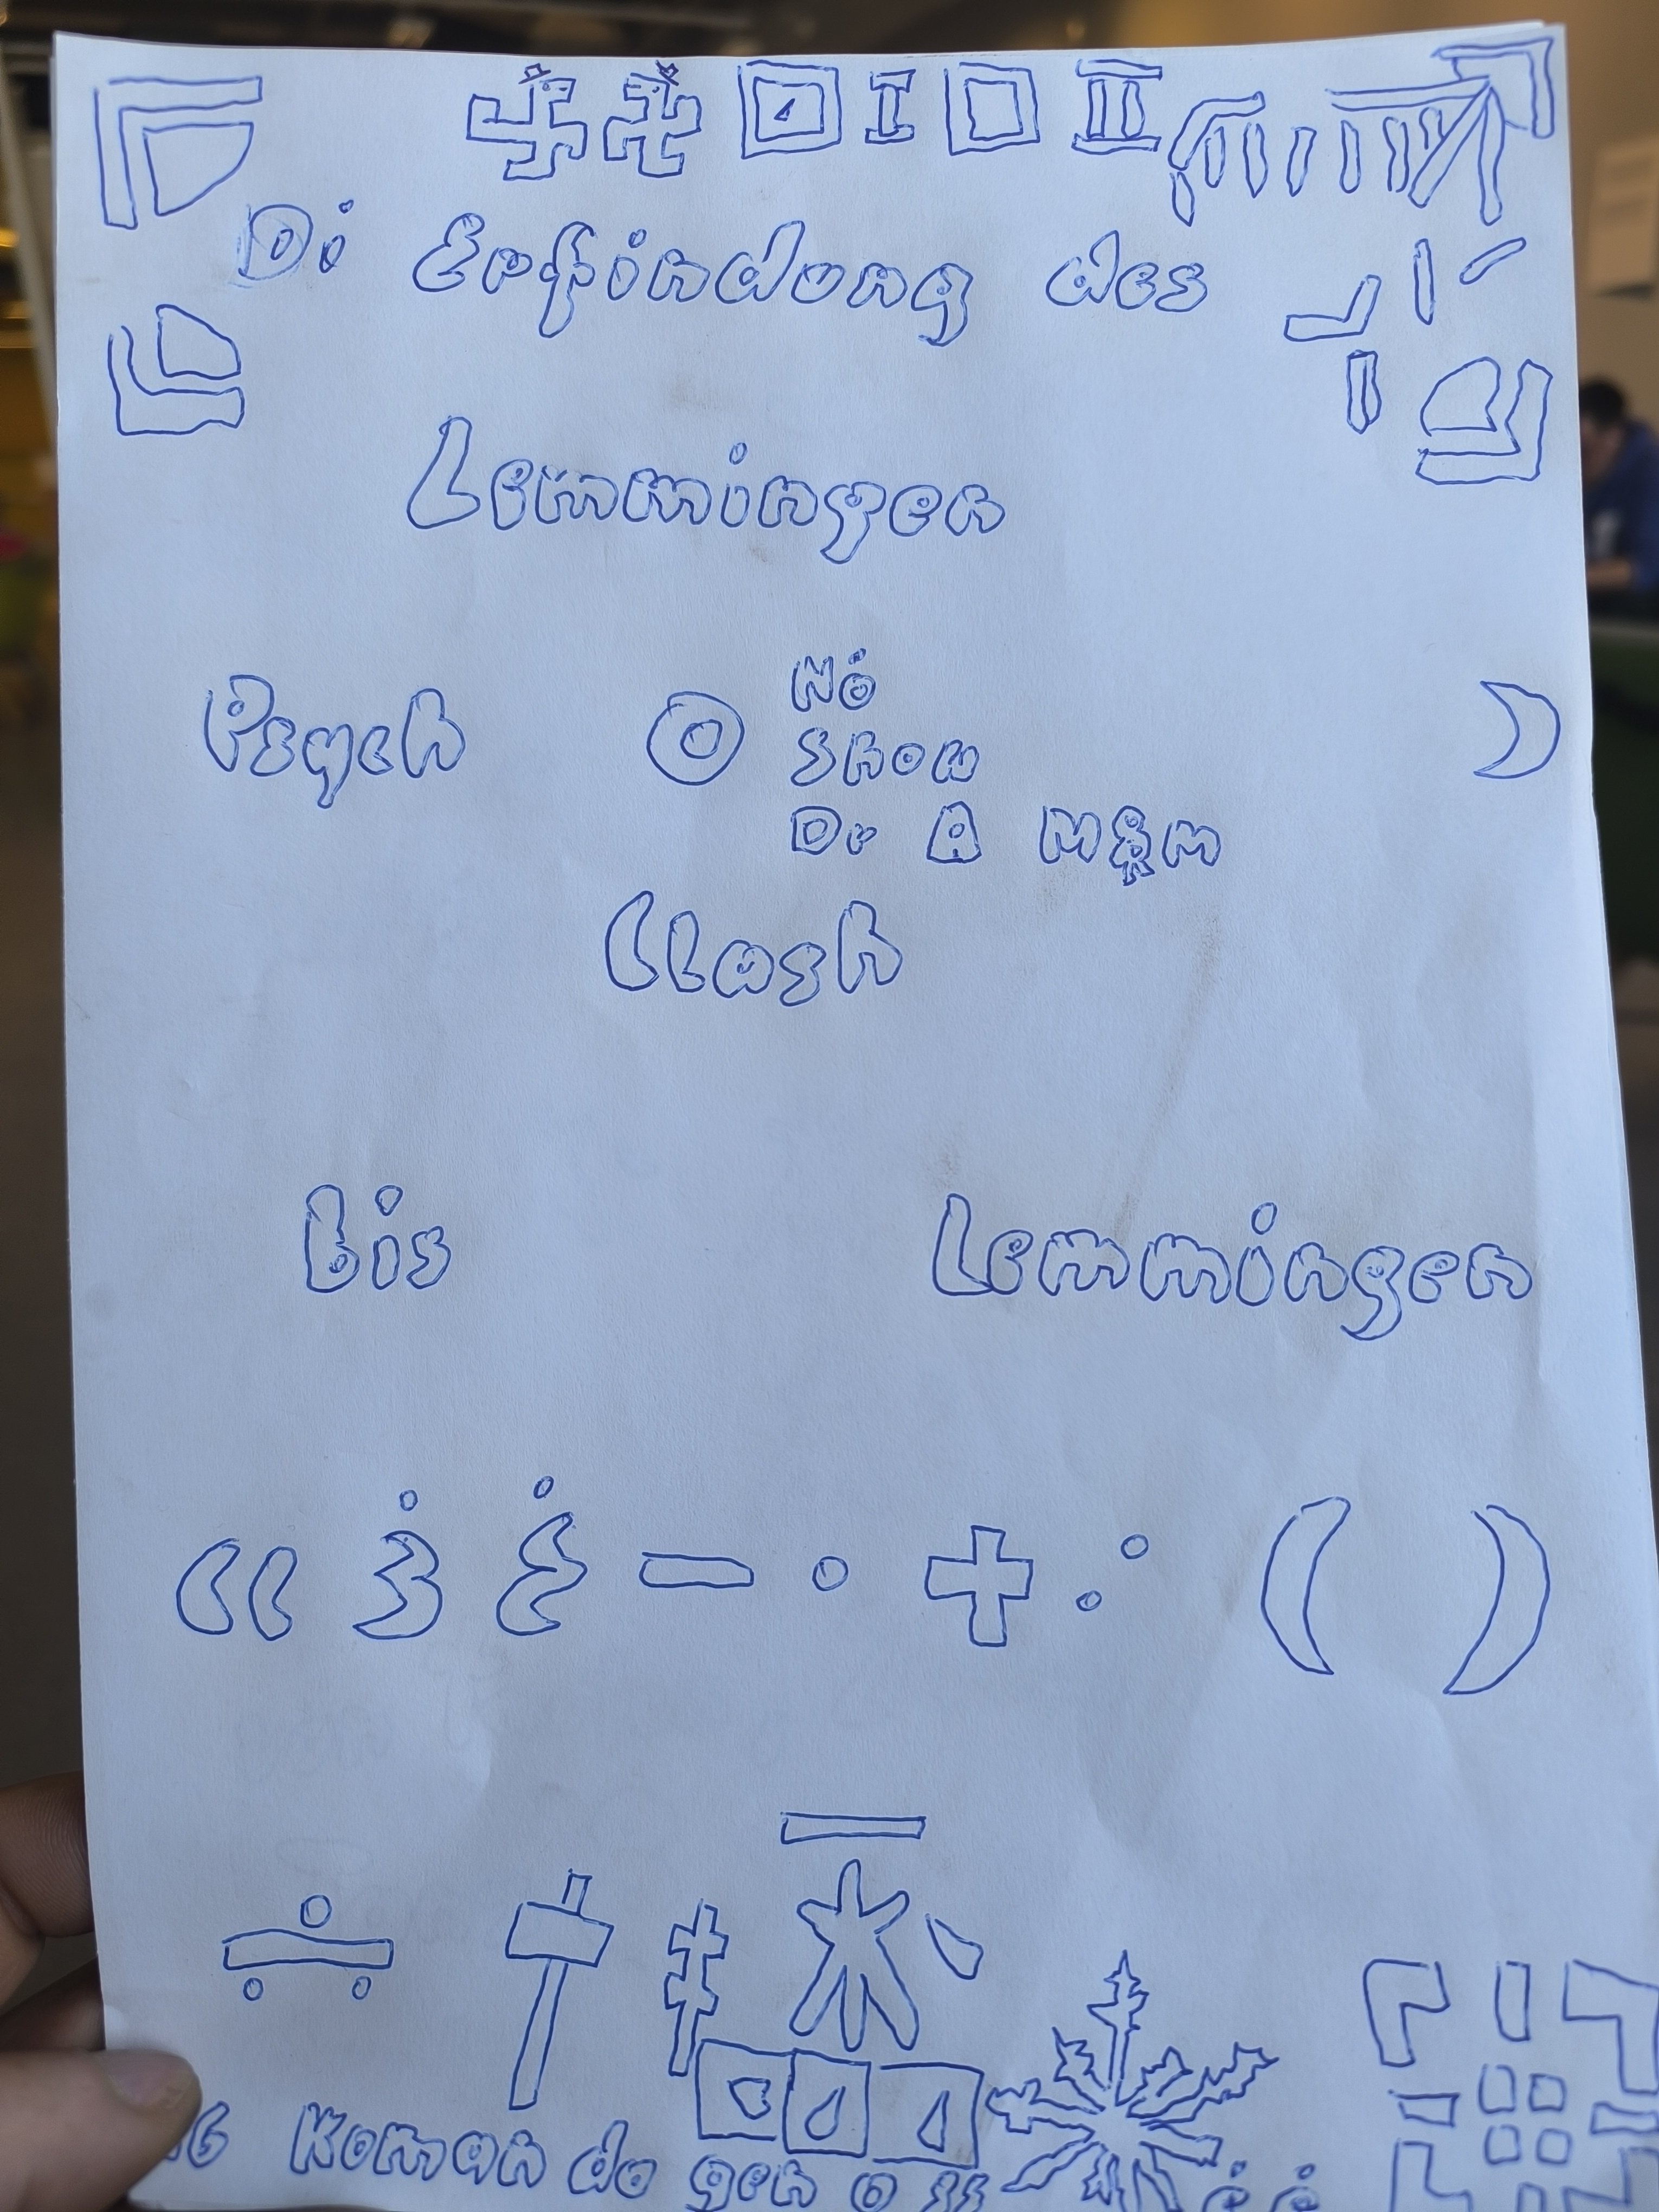 Di Erfindung des
Lemmingen
Psych
No
Show
Dr A M&M
Clash
bis
Lemmingen
Koman do gen o ss